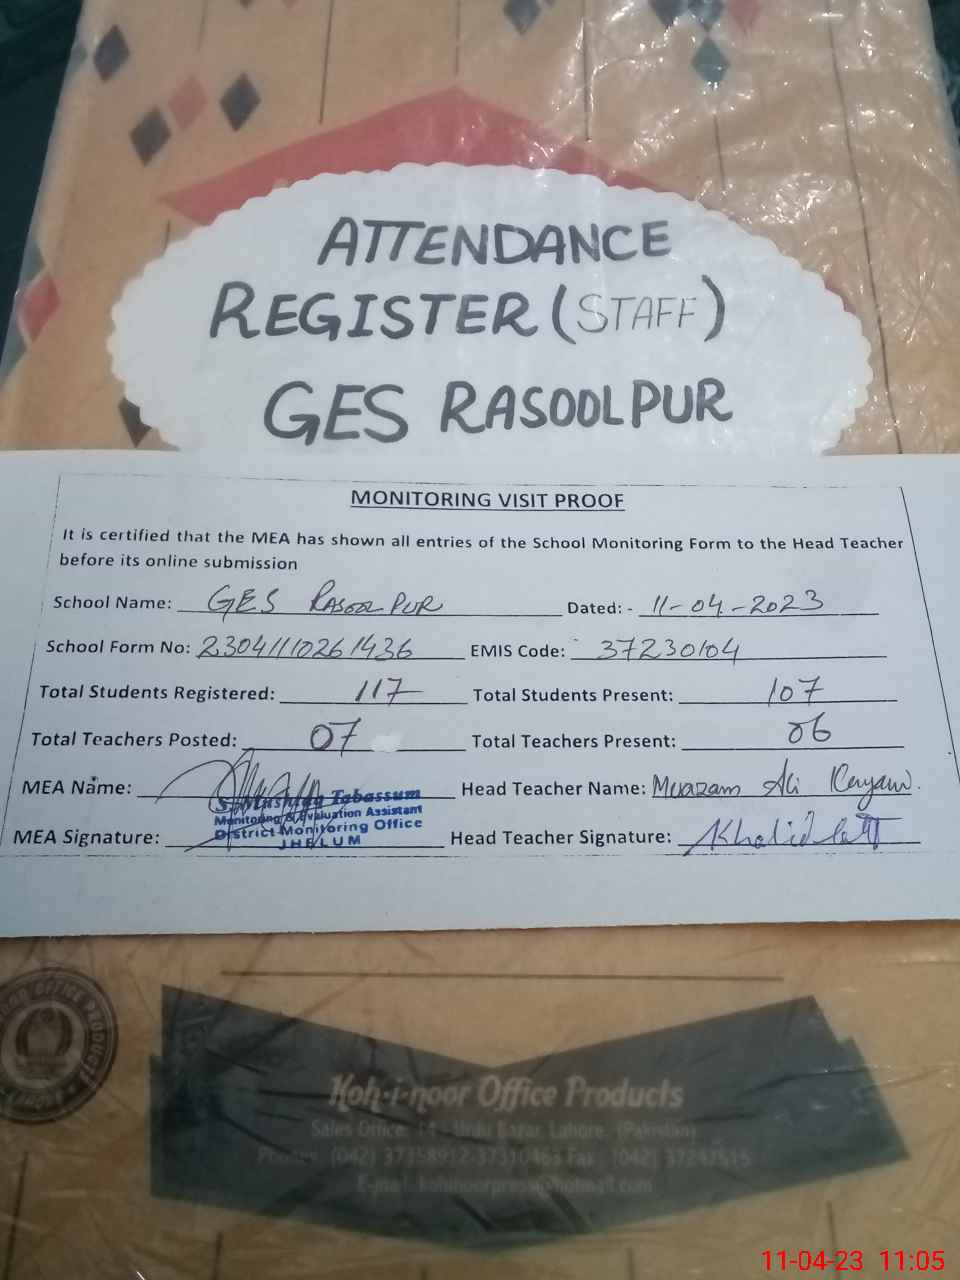 ATTENDANCE
REGISTER (STAFF)
GES RASOOLPUR
MONITORING VISIT PROOF
It is certified that the MEA has shown all entries of the School Monitoring Form to the Head Teacher
before its online submission
School Name: GES RASOOLPUR Dated: - 11-04-2023
School Form No: 23041110261436 EMIS Code: 37230104
Total Students Registered: 117 Total Students Present: 107
Total Teachers Posted: 07 Total Teachers Present: 06
MEA Name: Head Teacher Name: Muazam Ali
Tabassum
Monitoring & Evaluation Assistant
District Monitoring Office
JHELUM
MEA Signature: Head Teacher Signature: Khalid
Koh-i-noor Office Products
Sales Office: 14 - Urdu Bazar Lahore. (Pakistan)
Phones: (042) 37358912-37310468 Fax: (042)
E-mail: kohinoorpress@hotmail.com
11-04-23 11:05